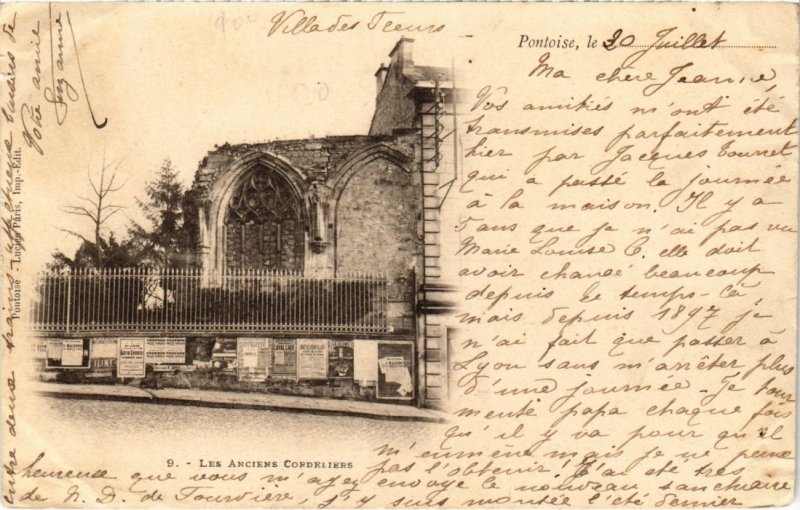 Villa des Fleurs
Pontoise, le 20 Juillet
Ma chère Jeanne,
Vos amitiés m'ont été
transmises parfaitement
hier par Jacques Tournet
qui a passé la journée
à la maison. Il y a
5 ans que je n'ai pas vu
Marie Louise C. elle doit
avoir changé beaucoup
depuis ce temps-là,
mais depuis 1897 je
n'ai fait que passer à
Lyon sans m'arrêter plus
d'une journée - Je tour
mente papa chaque fois
qu'il y va pour qu'il
m'emmène mais je ne peux
pas l'obtenir ! J'ai été très
heureuse que vous m'ayez envoyé le nouveau sanctuaire
de N. D. de Fourvière, j'y suis montée l'été dernier
entre deux trains
Votre amie
Suzanne
9. - Les Anciens Cordeliers
Pontoise - Lucien Pâris, Imp.-Edit.
1900